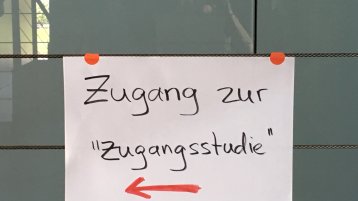 Zugang zur
"Zugangsstudie"